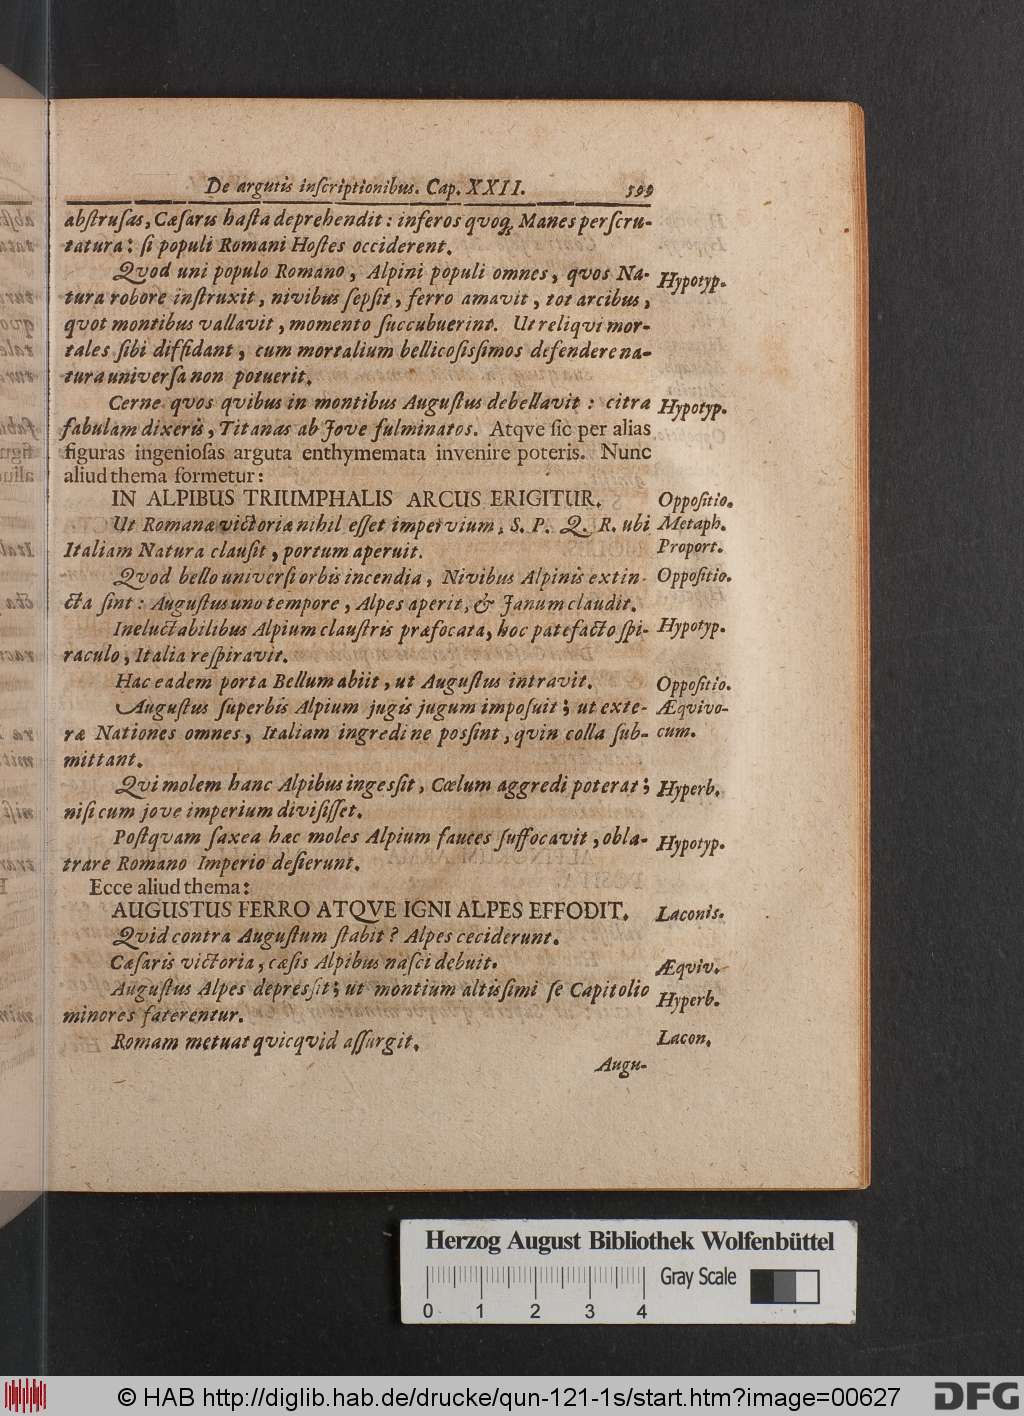 De argutis inſcriptionibus. Cap. XXII. 599
abſtruſas, Cæſaris haſta deprehendit: inferos qvoqꝫ Manes perſcru-
tatura: ſi populi Romani Hoſtes occiderent.
Qvod uni populo Romano, Alpini populi omnes, qvos Na- Hypotyp.
tura robore inſtruxit, nivibus ſepſit, ferro amavit, tot arcibus,
qvot montibus vallavit, momento ſuccubuerint. Ut reliqvi mor-
tales ſibi diffidant, cum mortalium bellicoſisſimos defendere na-
tura univerſa non potuerit.
Cerne qvos qvibus in montibus Auguſtus debellavit: citra Hypotyp.
fabulam dixeris, Titanas ab Jove fulminatos. Atqve ſic per alias
figuras ingenioſas arguta enthymemata invenire poteris. Nunc
aliud thema formetur:
IN ALPIBUS TRIUMPHALIS ARCUS ERIGITUR. Oppoſitio.
Ut Romanæ victoriæ nihil eſſet impervium, S. P. Q. R. ubi Metaph.
Italiam Natura clauſit, portum aperuit. Proport.
Qvod bello univerſi orbis incendia, Nivibus Alpinis extin- Oppoſitio.
cta ſint: Auguſtus uno tempore, Alpes aperit, & Janum claudit.
Ineluctabilibus Alpium clauſtris præfocata, hoc patefacto ſpi- Hypotyp.
raculo, Italia reſpiravit.
Hac eadem porta Bellum abiit, ut Auguſtus intravit. Oppoſitio.
Auguſtus ſuperbis Alpium jugis jugum impoſuit; ut exte- Æqvivo-
ræ Nationes omnes, Italiam ingredi ne posſint, qvin colla ſub- cum.
mittant.
Qvi molem hanc Alpibus ingesſit, Cœlum aggredi poterat; Hyperb.
niſi cum jove imperium diviſiſſet.
Poſtqvam ſaxea hæc moles Alpium fauces ſuffocavit, obla- Hypotyp.
trare Romano Imperio deſierunt.
Ecce aliud thema:
AUGUSTUS FERRO ATQVE IGNI ALPES EFFODIT. Laconis.
Qvid contra Auguſtum ſtabit? Alpes ceciderunt.
Cæſaris victoria, cæſis Alpibus naſci debuit. Æqviv.
Auguſtus Alpes depresſit; ut montium altisſimi ſe Capitolio Hyperb.
minores faterentur.
Romam metuat qvicqvid aſſurgit. Lacon.
Augu-
Herzog August Bibliothek Wolfenbüttel
Gray Scale
0 1 2 3 4
© HAB http://diglib.hab.de/drucke/qun-121-1s/start.htm?image=00627 DFG